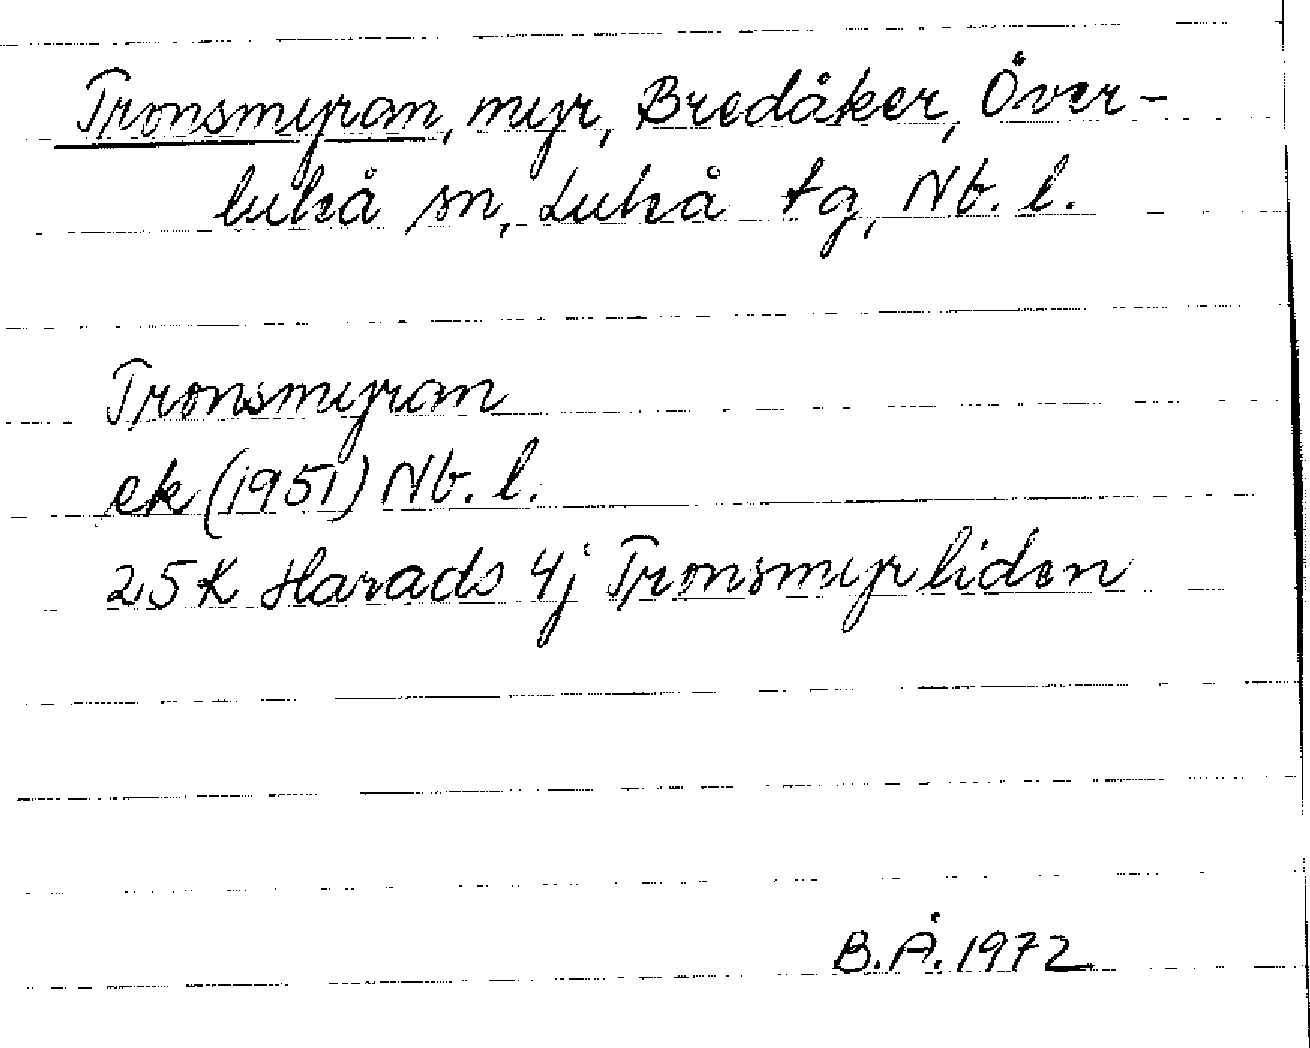 Tronsmyran, myr, Bredåker, Över-
luleå sn, Luleå tg, Nb. l.
Tronsmyran
ek (1951) Nb. l.
25K Harads 4j Tronsmyrliden
B.Å. 1972